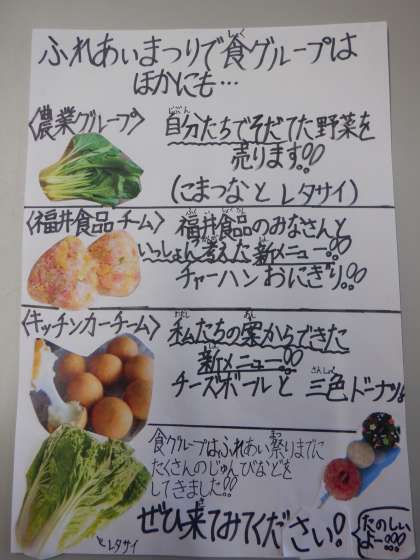 ふれあいまつりで食グループは
ほかにも…
〈農業グループ〉
自分たちでそだてた野菜を
売ります!!
(こまつなとレタサイ)
〈福井食品チーム〉
福井食品のみなさんと
いっしょに考えた新メニュー!!
チャーハンおにぎり!!
〈キッチンカーチーム〉
私たちの案からできた
新メニュー!!
チーズボールと三色ドーナツ
食グループはふれあい祭りまでに
たくさんのじゅんびなどを
してきました!!
ぜひ来てみてください!
たのしい
よー!!!
レタサイ